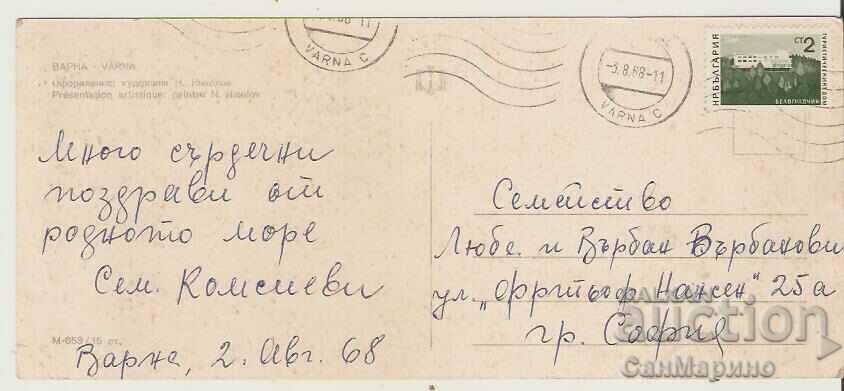 ВАРНА - VARNA
Оформление: художник Н. Николов
Présentation artistique: peintre N. Nikolov
Много сърдечни
поздрави от
родното море
Сем. Комсиеви
М-653/15 ст.
Варна, 2. Авг. 68
VARNA C
-3.8.68-11
VARNA C
НРБЪЛГАРИЯ
СТ 2
БЕЛОГРАДЧИК
Семейство
Любе. и Върбан Върбанови
ул. „Фритьоф Нансен" 25а
гр. София
auction
СанМарино